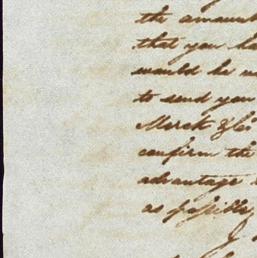 the amount
that you ha
would be
to send you
confirm the
advantage
as possible